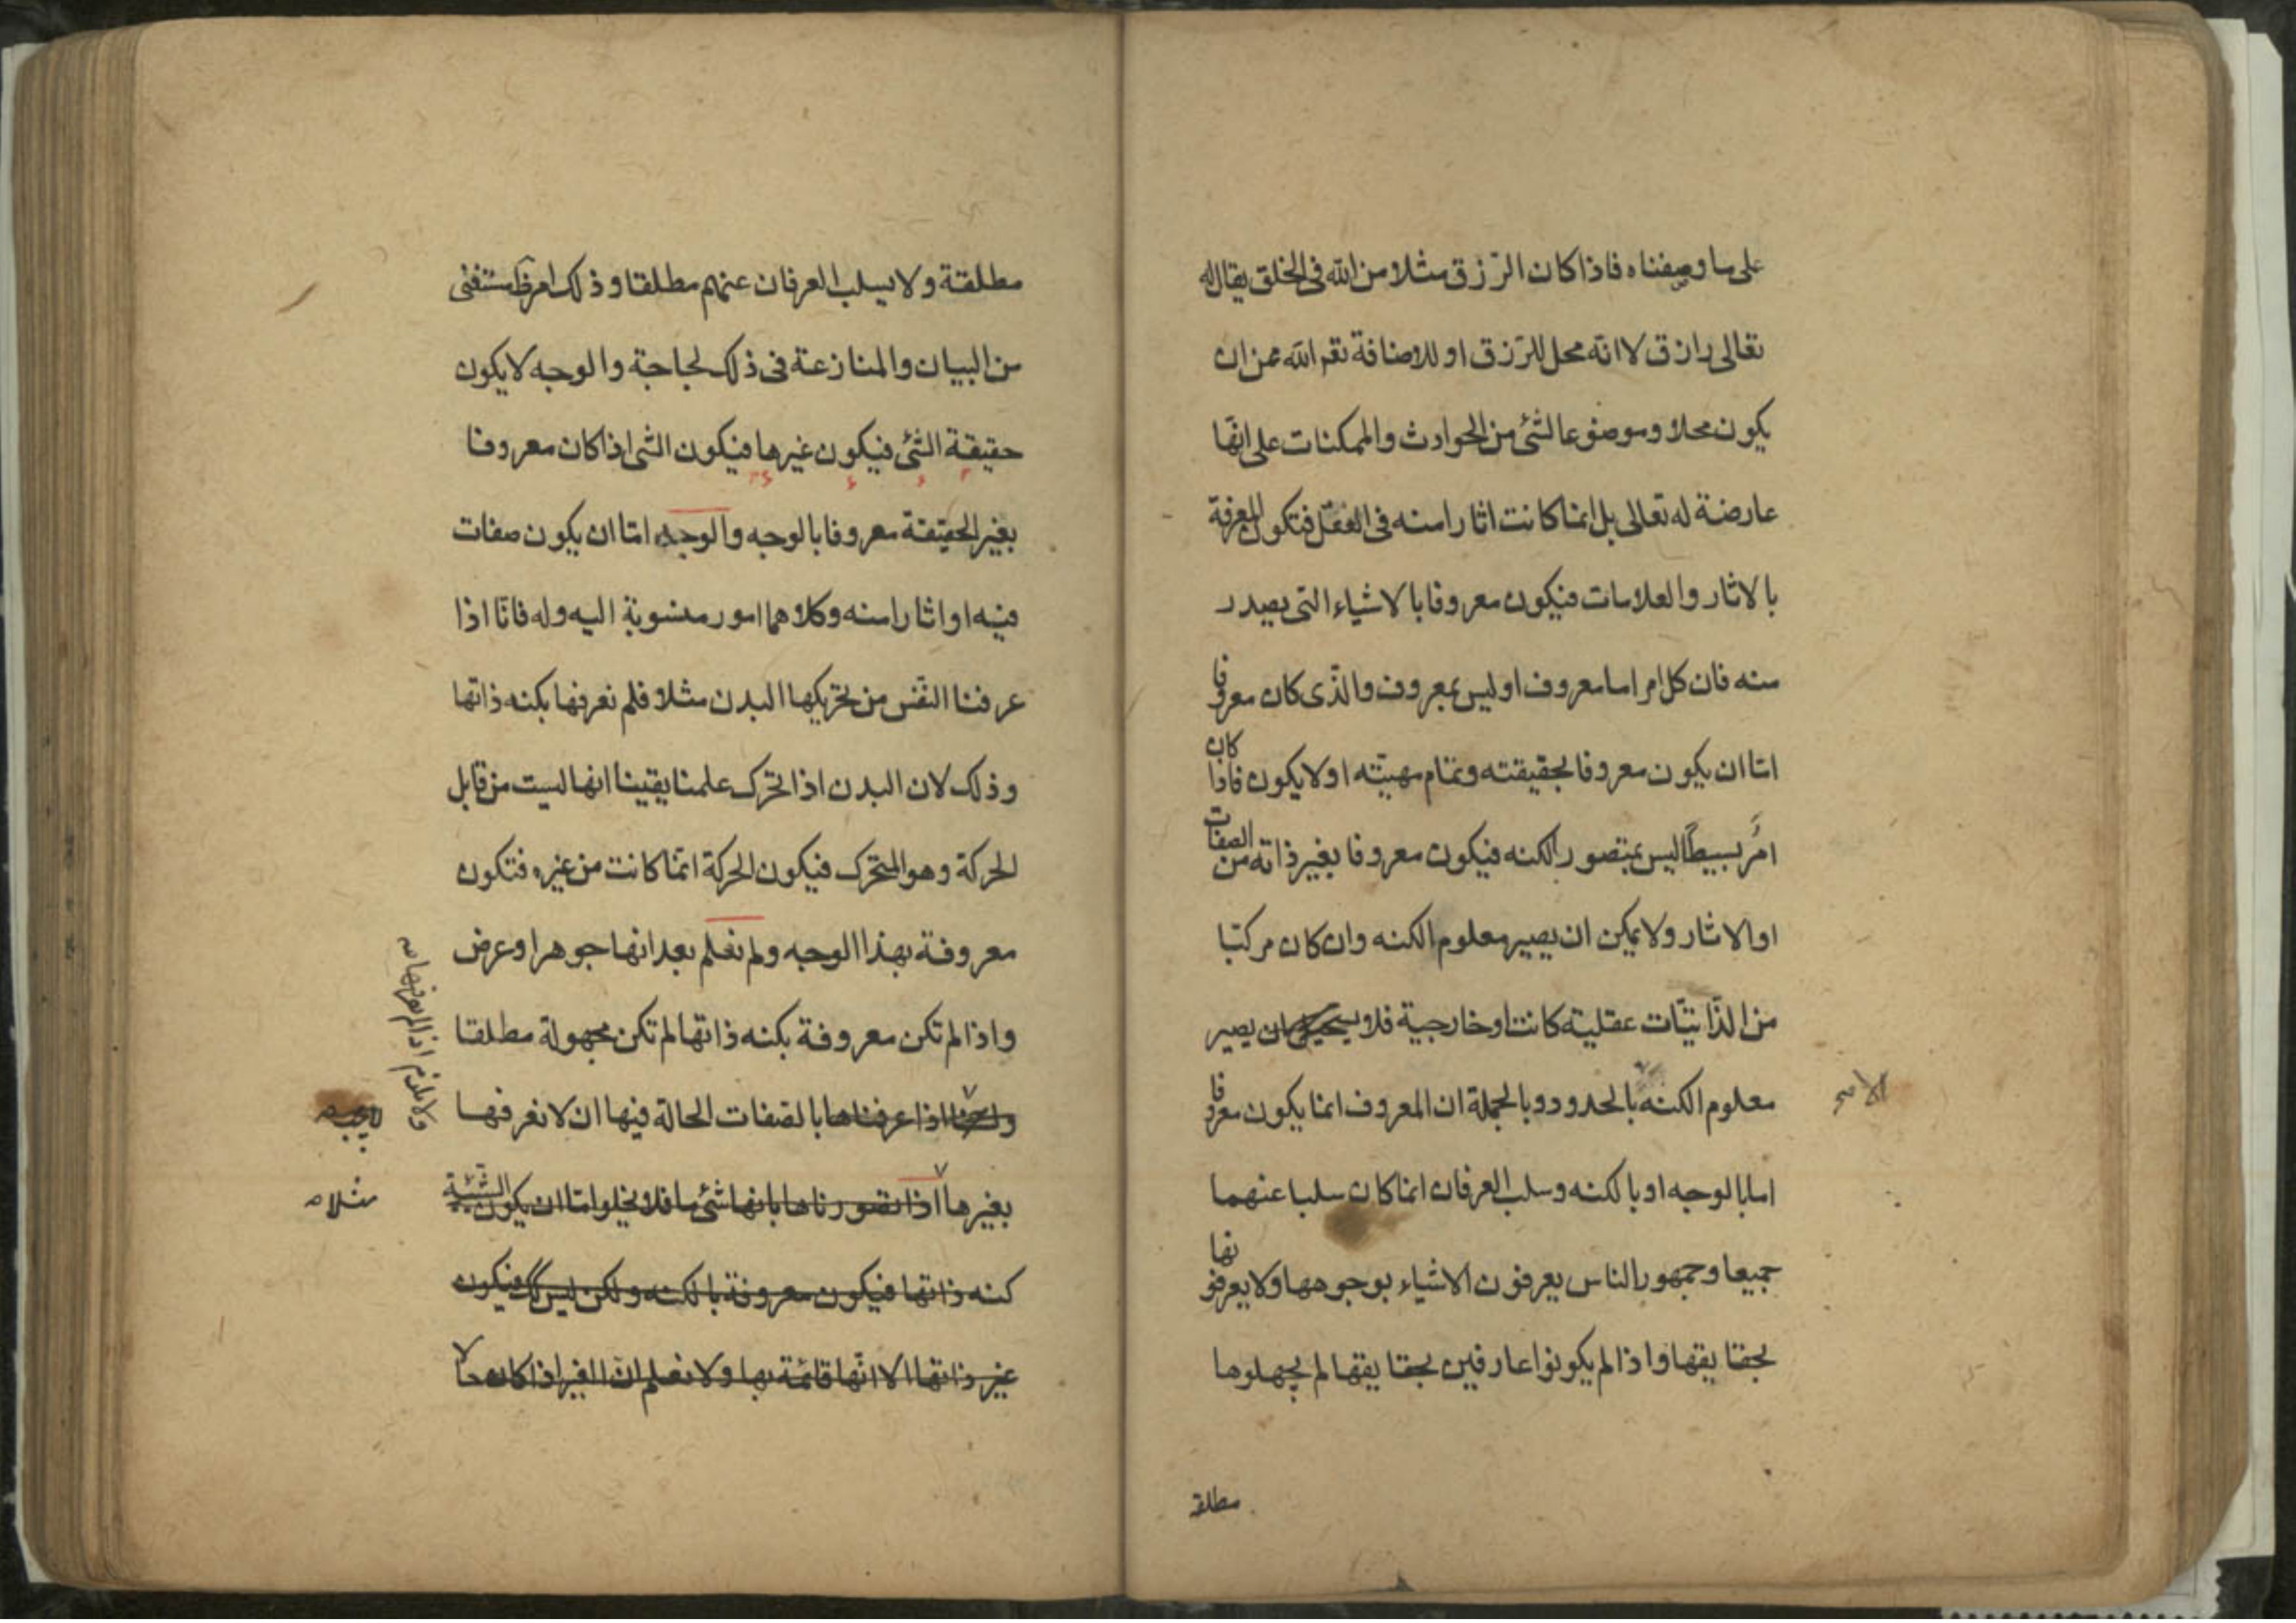 على ما وصفناه فاذا كان الرّزق مثلا من الله فى الخلق يقال له
تعالى رازق لا انّه محل للرّزق او للاضافة نعم الله عن ان
يكون محلا و موضوعا لشئ من الحوادث والممكنات على انّها
عارضة له تعالى بل انما كانت اثارا منه فى العقل فتكون المعرفة
بالاثار والعلامات فيكون معروفا بالاشياء التى يصدر
منه فان كل امر اما معروف او ليس بمعروف والذّى كان معروفا
امّا ان يكون معروفا بحقيقته وتمام مهيّته او لا يكون فاذا كان
امرٌ بسيطًا ليس بمتصور الكنه فيكون معروفا بغير ذاته من الصفات
او الاثار ولا يمكن ان يصير معلوم الكنه وان كان مركبّا
من الذّاتيّات عقلية كانت او خارجية فلا يستحيل ان يصير
معلوم الكنه بالحدود وبالجملة ان المعروف انما يكون معروفا
اما بالوجه او بالكنه وسلب العرفان انما كان سلبا عنهما
جميعا وجمهور الناس يعرفون الاشياء بوجوهها ولا يعرفونها
بحقايقها واذا لم يكونوا عارفين بحقايقها لم يجهلوها
مطلقة
مطلقة ولا يسلب العرفان عنهم مطلقا وذلك امر مستغنى
من البيان والمنازعة فى ذلك لجاجة والوجه لا يكون
حقيقة الشئ فيكون غيرها فيكون الشى اذا كان معروفا
بغير الحقيقة معروفا بالوجه والوجه امّا ان يكون صفات
فيه او اثارا منه وكلاهما امور منسوبة اليه وله فانّا اذا
عرفنا النّفس من تحريكها البدن مثلا فلم نعرفها بكنه ذاتها
وذلك لان البدن اذا تحرك علمنا يقينا انها ليست من قابل
الحركة وهو المتحرك فيكون الحركة انّما كانت من غيره فتكون
معروفة بهذا الوجه ولم نعلم بعد انها جوهر او عرض
واذا لم تكن معروفة بكنه ذاتها لم تكن مجهولة مطلقا
اذا عرفناها بالصفات الحالة فيها ان لا نعرفها
بغيرها اذا تصورناها بانها شئ ما فلا يخلو امّا ان يكون الشيئية
مثلا
كنه ذاتها فيكون معروفة بالكنه ولكن ليس كك فيكون
غير ذاتها الا انّها قائمة بها ولا نعلم انّ الغير اذا كان